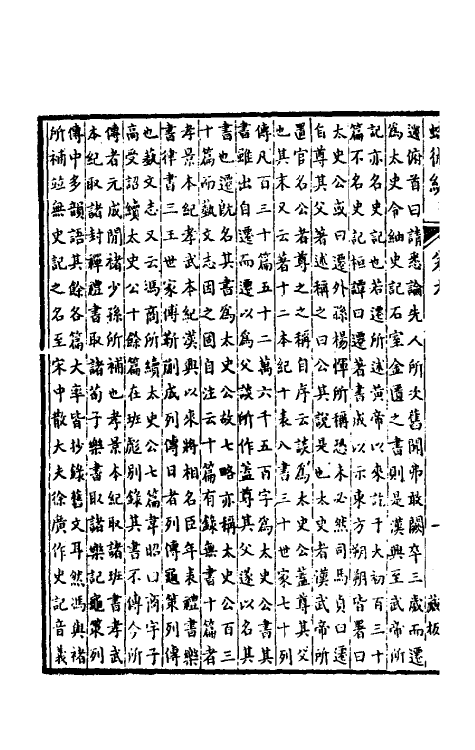 蛾術編 卷九 一 藏板
遷俯首曰請悉論先人所次舊聞弗敢闕卒三歲而遷
爲太史令紬史記石室金匱之書則是漢興至武帝所
記亦名史記也若遷所述黃帝以來訖于大初百三十
篇不名史記桓譚曰遷著書成以示東方朔朔皆署曰
太史公或曰遷外孫楊惲所稱恐未必然司馬貞曰遷
自尊其父著述稱之曰公其說是也太史者漢武帝所
置官名公者尊之之稱自序云談爲太史公蓋尊其父
也其末又云著十二本紀十表八書三十世家七十列
傳凡百三十篇五十二萬六千五百字爲太史公書其
書雖出自遷而遷以爲父談所作蓋尊其父遂以名其
書也遷旣名其書爲太史公故七略亦稱太史公百三
十篇而藝文志因之固自注云十篇有錄無書十篇者
孝景本紀孝武本紀漢興以來將相名臣年表禮書樂
書律書三王世家傅靳蒯成列傳日者列傳龜策列傳
也藝文志又云馮商所續太史公七篇韋昭曰商字子
高受詔續太史公十餘篇在班彪別錄其書不傳今所
傳者元成閒褚少孫所補也孝景本紀取諸班書孝武
本紀取諸封禪禮書取諸荀子樂書取諸樂記龜策列
傳中多韻語其餘各篇大率皆抄錄舊文耳然馮與褚
所補竝無史記之名至宋中散大夫徐廣作史記音義